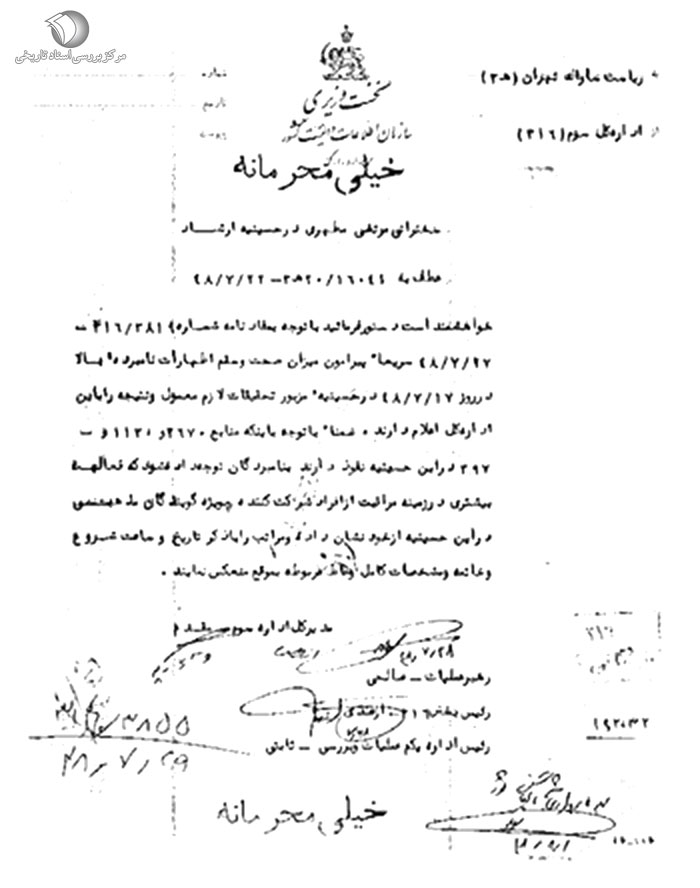 مرکز بررسی اسناد تاریخی
ریاست ساواک تهران (ﻫ ۳)
شماره
نخست وزیری
تاریخ
سازمان اطلاعات و امنیت کشور
از اداره کل سوم (۳۱۶)
پیوست
خیلی محرمانه
سخنرانی مرتضی مطهری در حسینیه ارشاد
عطف به ۲۰/۱۶۰۴۶ﻫ۳ - ۴۸/۷/۲۲
خواهشمند است دستور فرمائید با توجه بمفاد نامه شماره ۳۱۶/۳۸۱ –
۴۸/۷/۱۷ سریعا" پیرامون میزان صحت و سقم اظهارات نامبرده بالا
در روز ۴۸/۷/۱۷ در حسینیه مزبور تحقیقات لازم معمول و نتیجه را باین
اداره کل اعلام دارند ۰ ضمنا" با توجه باینکه منابع ۲۶۷۰ و ۱۱۳۰ و –
۳۹۷ در این حسینیه نفوذ دارند بنامبردگان توجه داده شود که فعالیت
بیشتری در زمینه مراقبت از افراد شرکت کننده بویژه گویندگان مذهبی
در این حسینیه از خود نشان داده و مراتب را با ذکر تاریخ و ساعت شروع
و خاتمه و مشخصات کامل و نقاط مربوطه بموقع منعکس نمایند ۰
مدیرکل اداره سوم – مقدم
۴۸/۷/۲۸
رهبر عملیات – صالحی
رئیس بخش ۳۱۶ ازغندی
رئیس اداره یکم عملیات و بررسی – ثابتی
۳۱۶
۱۹۲۰۳۲
۳۸۵۵
۴۸/۷/۲۹
خیلی محرمانه